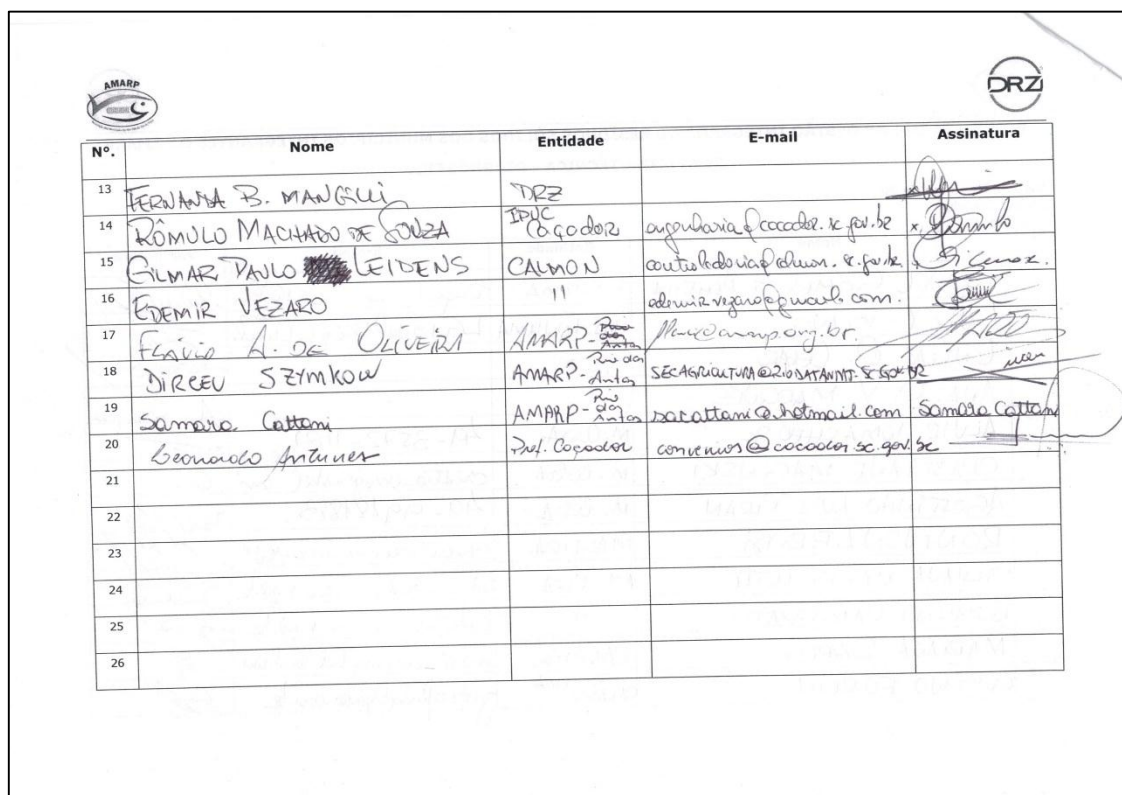 AMARP
DRZ
Nº. Nome Entidade E-mail Assinatura
13 FERNANDA B. MANGILLI DRZ
14 RÔMULO MACHADO DE SOUZA IPUC Caçador engenharia@cacador.sc.gov.br
15 GILMAR PAULO LEIDENS CALMON controladoria@calmon.sc.gov.br
16 EDEMIR VEZARO " edemirvezaro@gmail.com.
17 FLÁVIO A. DE OLIVEIRA AMARP - flavio@amarp.org.br.
18 DIRCEU SZYMKOW AMARP - Rio das Antas
19 Samara Cattani AMARP - Rio das Antas sacattani@hotmail.com Samara Cattani
20 Leonardo Antunes Pref. Caçador convenios@cacador.sc.gov.br
21
22
23
24
25
26